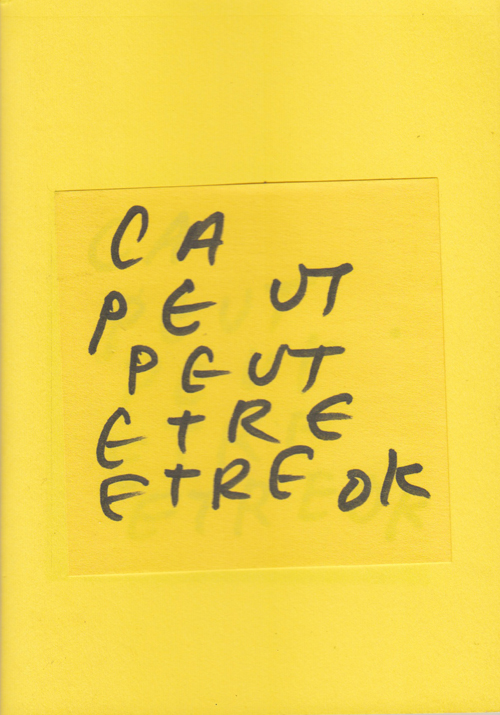 CA
PEUT
PEUT
ETRE
ETRE OK